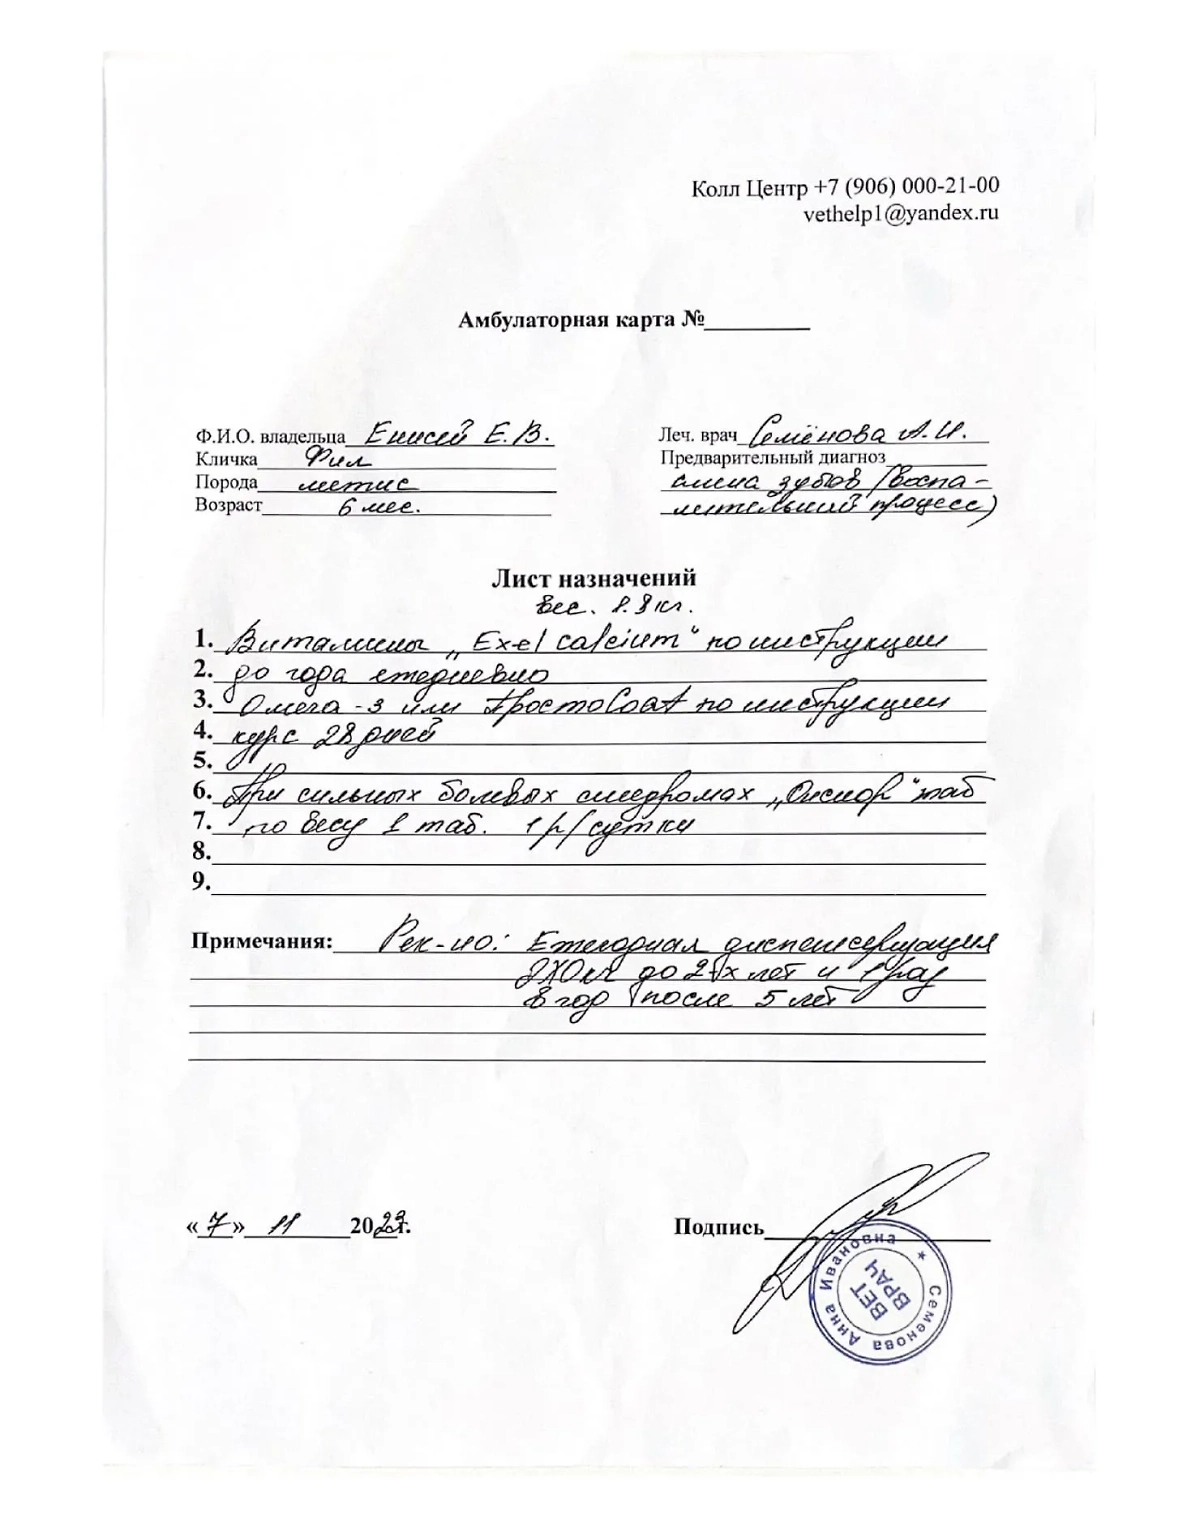 Колл Центр +7 (906) 000-21-00
vethelp1@yandex.ru
Амбулаторная карта №
Ф.И.О. владельца Енисей Е.В.
Кличка Фил
Порода метис
Возраст 6 мес.
Леч. врач Семёнова А.И.
Предварительный диагноз
смена зубов (воспа-
лительный процесс)
Лист назначений
Вес. 8.8 кг.
1. Витамины „Exel calcium" по инструкции
2. до года ежедневно
3. Омега-3 или ПростоCoat по инструкции
4. курс 28 дней
5.
6. При сильных болевых синдромах „Онсиор" таб
7. по весу 1 таб. 1 р/сутки
8.
9.
Примечания: Рек-но: Ежегодная диспансеризация
до х лет и 1 раз
в год после 5 лет
«7» 11 2023г.
Подпись
Семенова Анна Ивановна
ВЕТ
ВРАЧ